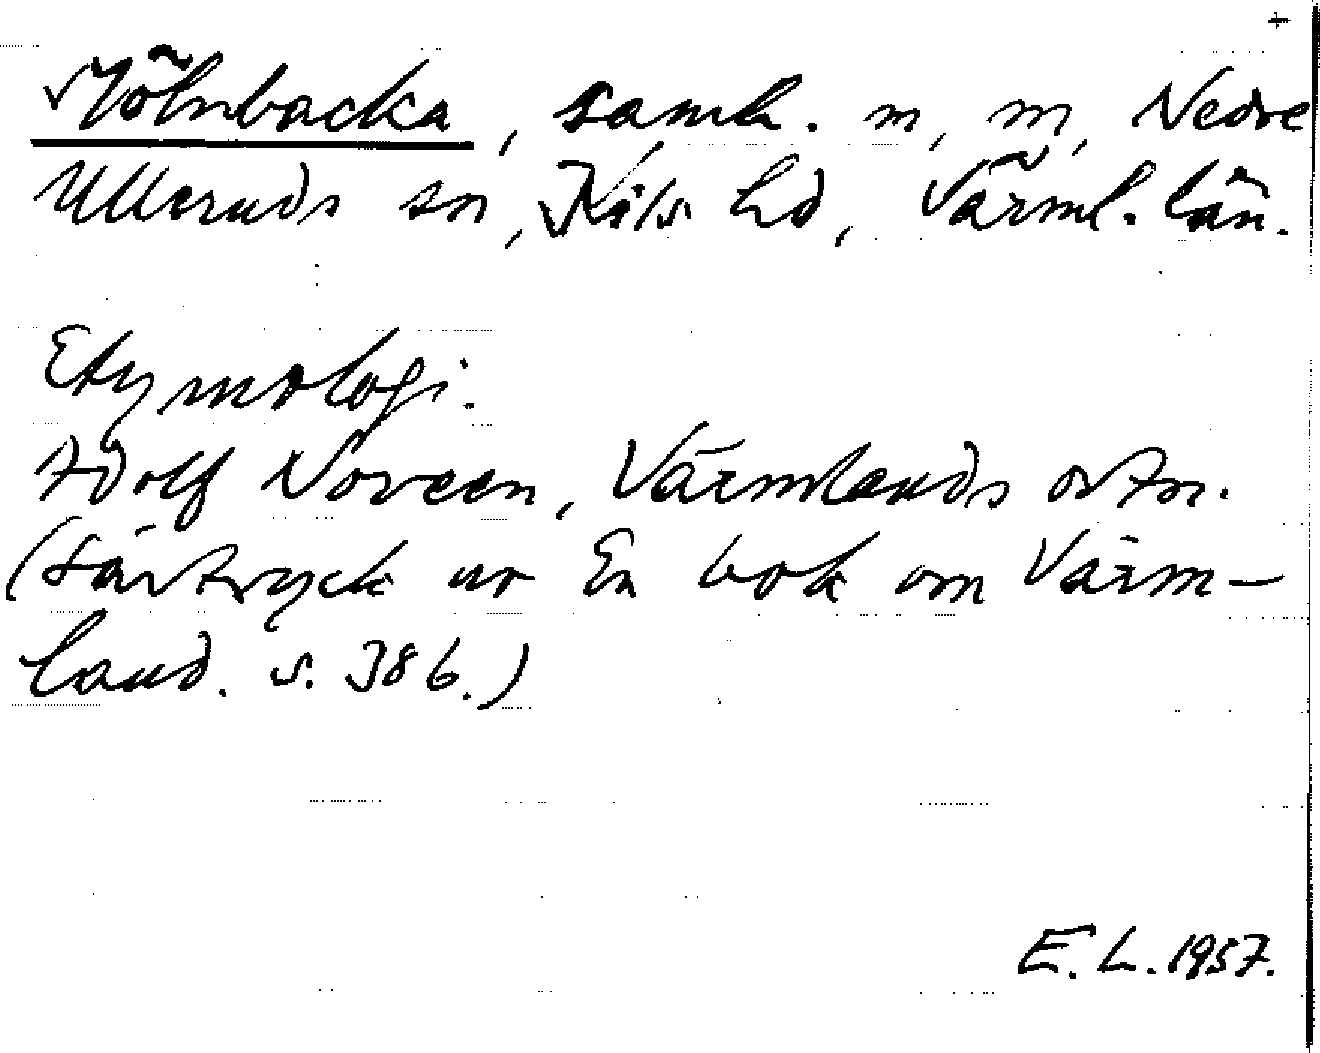 Mölnbacka, samh. m. m, Nedre
Ulleruds sn, Kils hd, Värml. län.
Etymologi.
Adolf Noreen, Värmlands ortn.
(särtryck ur En bok om Värm-
land. s. 386.)
E. L. 1957.